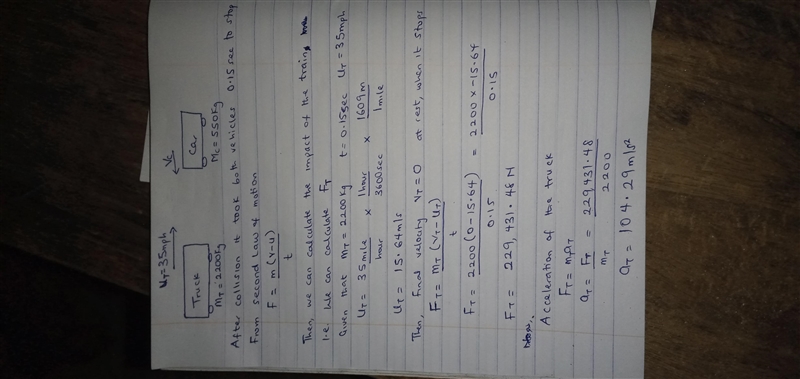 UT = 35mph
VC
Truck
Car
MT = 2200Kg
MC = 550Kg
After collision it took both vehicles 0.15 sec to stop
From second Law of motion
F = m(V-U)
t
Then, we can calculate the impact of the train
i.e. We can calculate FT
Given that MT = 2200Kg t = 0.15sec UT = 35mph
UT = 35 mile/hour × 1hour/3600sec × 1609m/1mile
UT = 15.64m/s
Then, final velocity VT = 0 at rest, when it stops
FT = MT (VT - UT)
t
FT = 2200(0-15.64)/0.15 = 2200 x -15.64/0.15
FT = 229,431.48 N
Acceleration of the truck
FT = MT aT
aT = FT/MT = 229,431.48/2200
aT = 104.29m/s²